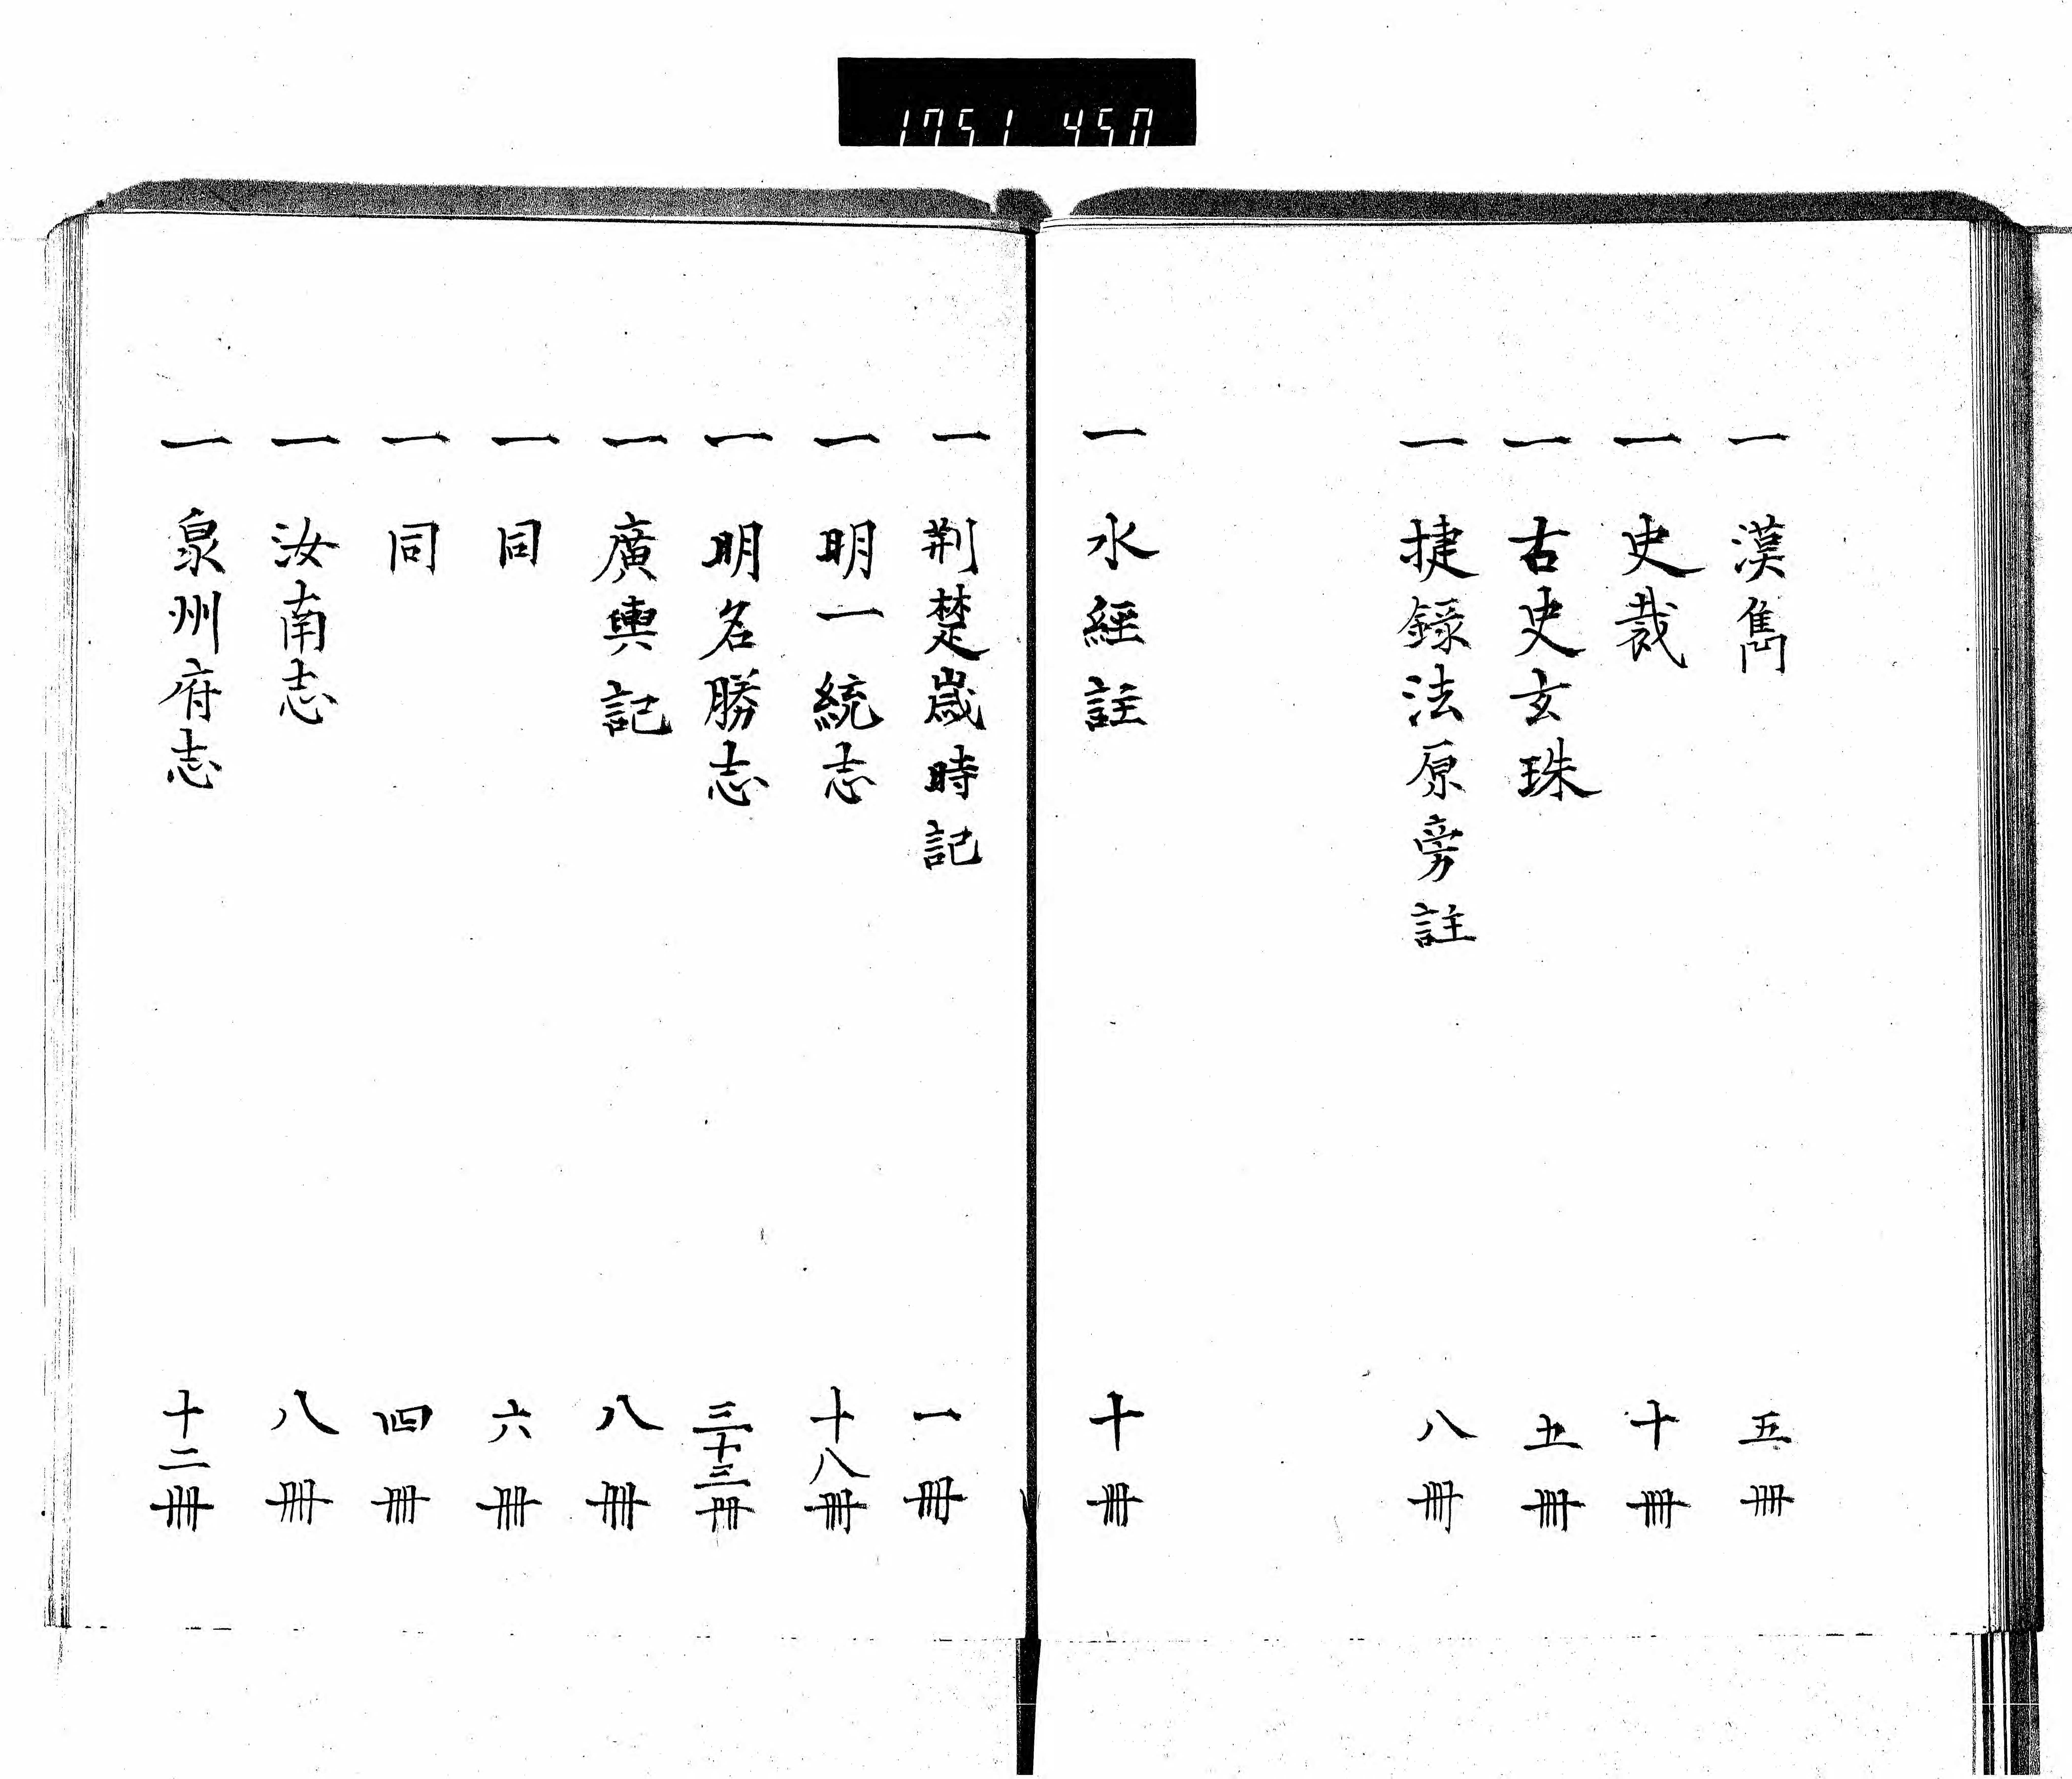 1751 450
一 漢雋 五冊
一 史裁 十冊
一 古史玄珠 五冊
一 捷録法原旁註 八冊
一 水經註 十冊
一 荆楚歳時記 一冊
一 明一統志 十八冊
一 明名勝志 三十三冊
一 廣輿記 八冊
一 同 六冊
一 同 四冊
一 汝南志 八冊
一 泉州府志 十二冊